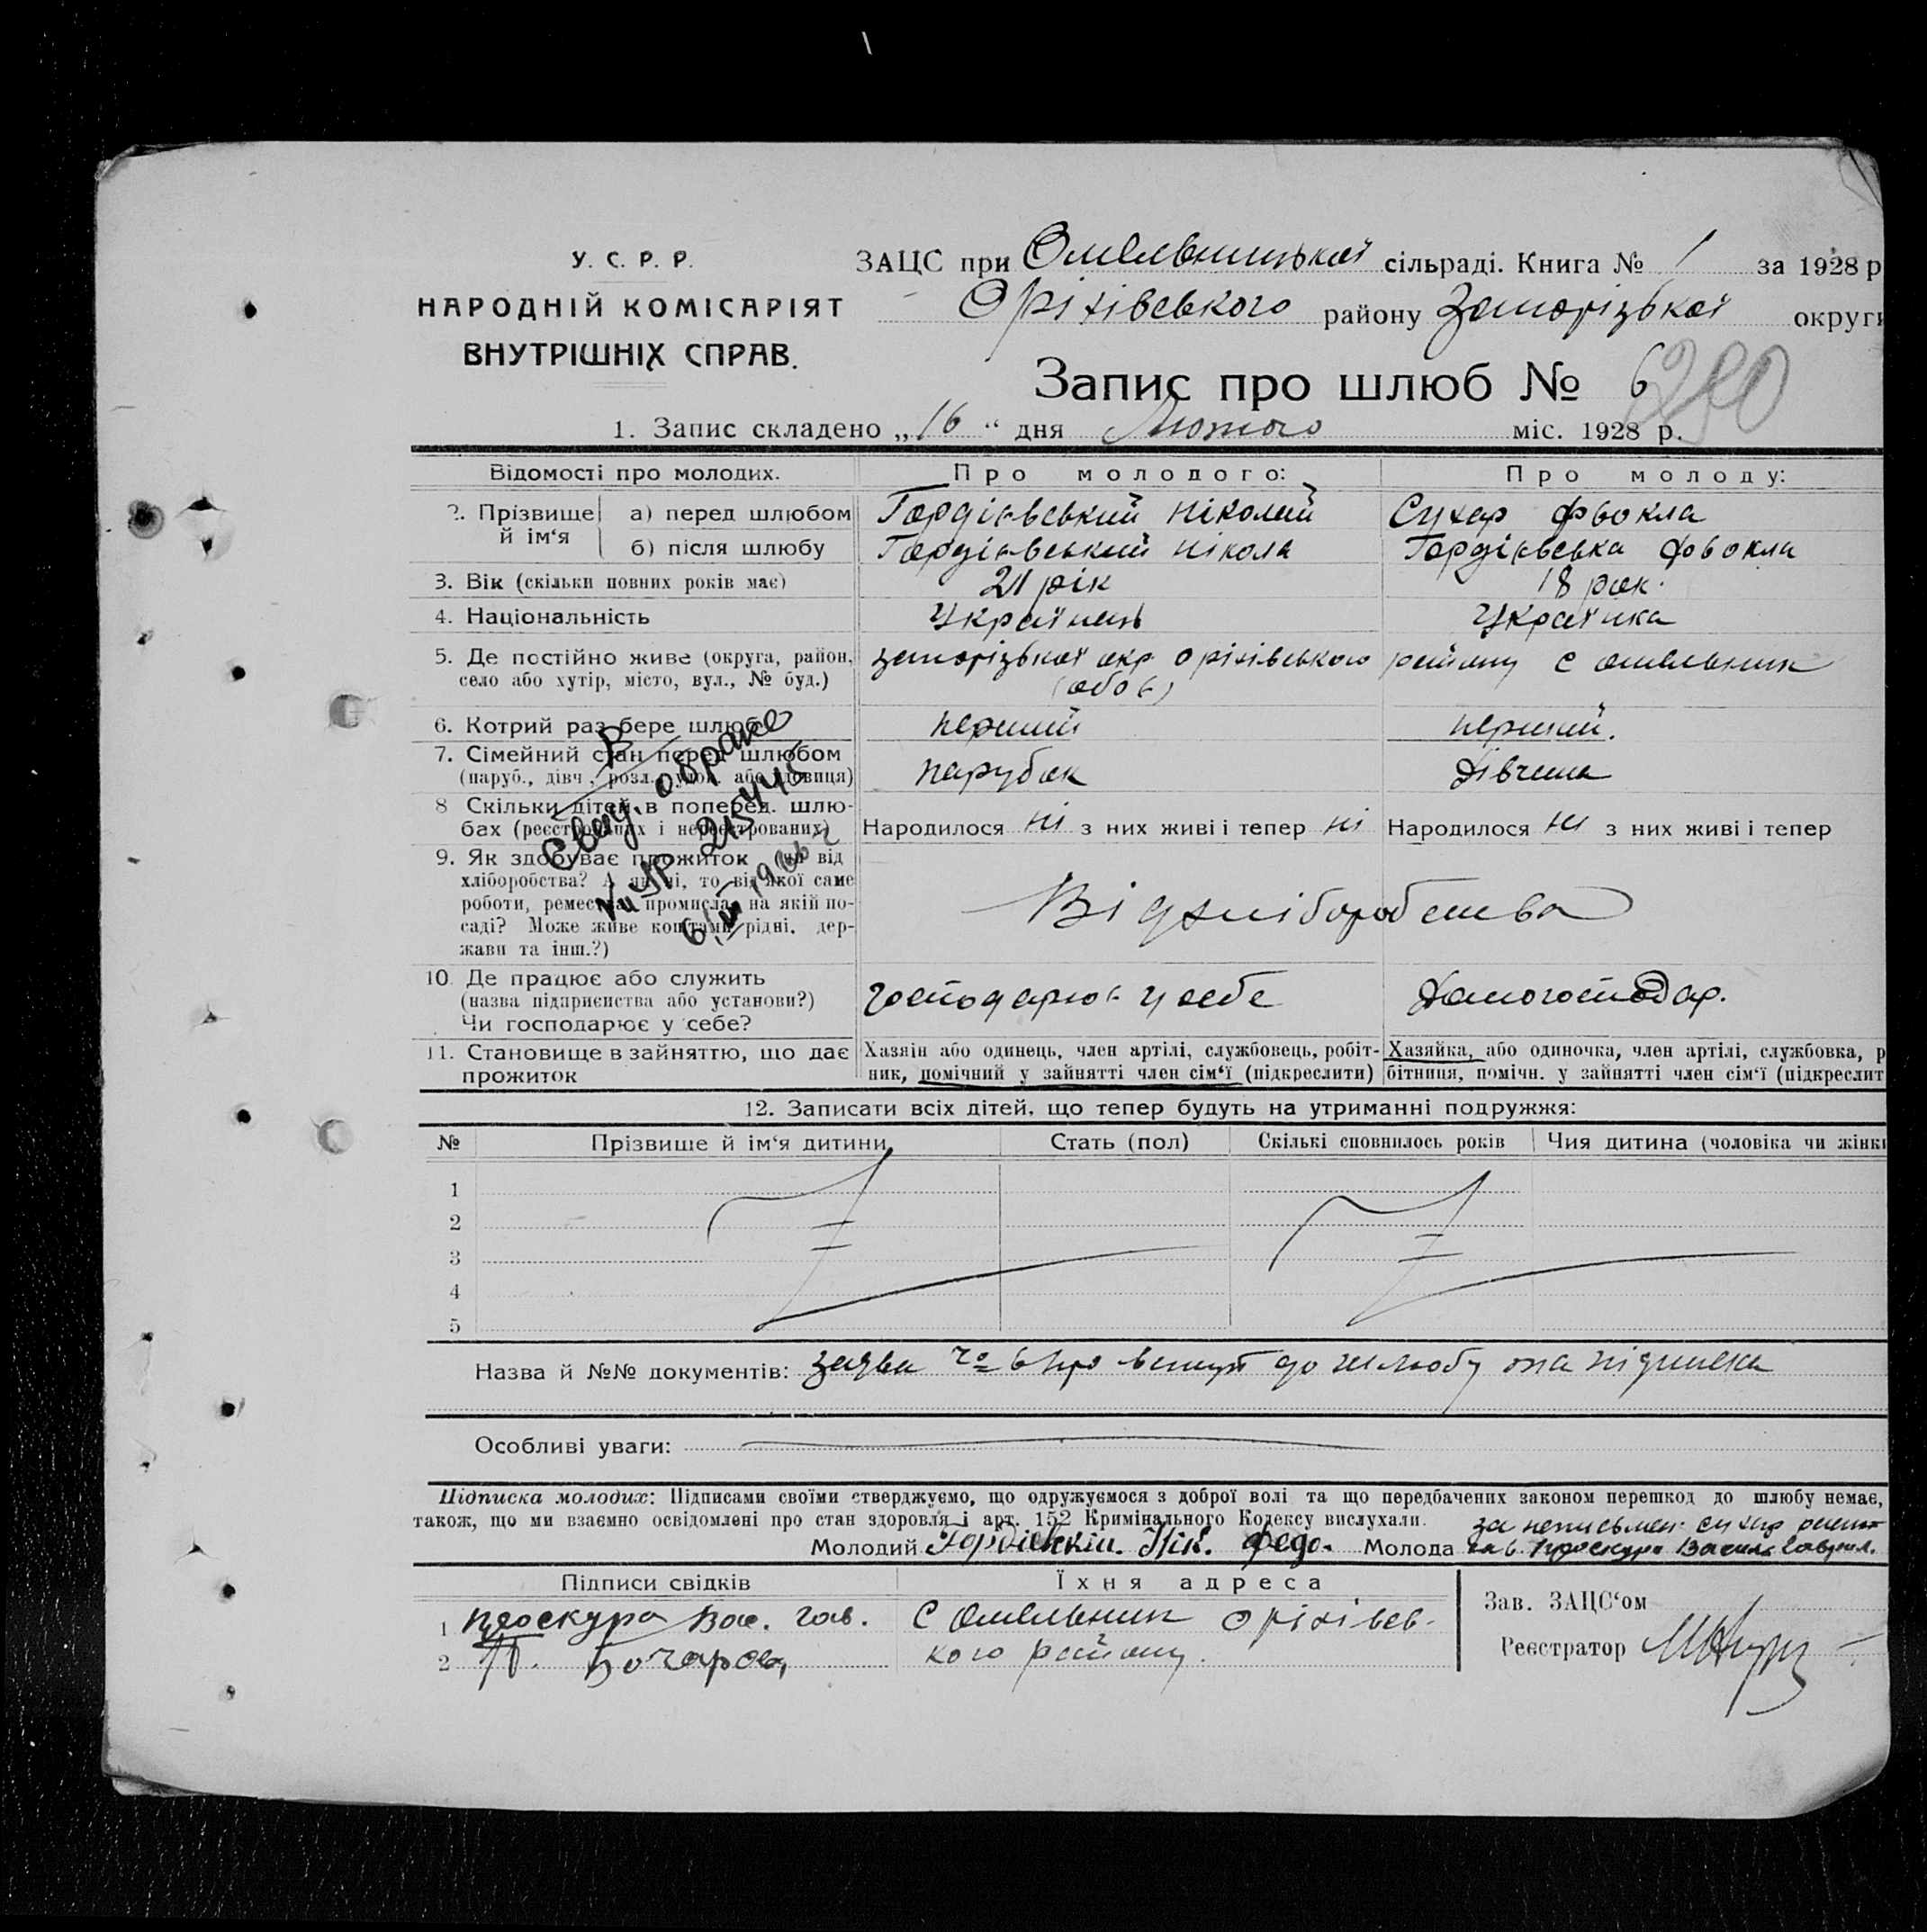 У. С. Р. Р.
НАРОДНІЙ КОМІСАРІЯТ
ВНУТРІШНІХ СПРАВ.
ЗАЦС при Омельницької сільраді. Книга № 1 за 1928 р
Оріхівського району Запорізької округи
Запис про шлюб № 6
280
1. Запис складено „16“ дня Лютого міс. 1928 р.
Відомості про молодих. Про молодого: Про молоду:
2. Прізвище й ім‘я а) перед шлюбом Гордієвський Николай Сухар Фвокла
б) після шлюбу Гордієвський Нікола Гордієвська Фвокла
3. Вік (скільки повних років має) 21 рік 18 рок.
4. Національність Українець Українка
5. Де постійно живе (округа, район, село або хутір, місто, вул., № буд.) Запорізької окр Оріхівського району с Омельник
(обоє)
6. Котрий раз бере шлюб перший перший.
7. Сімейний стан перед шлюбом (паруб., дівч., розл., удов. або вдовиця) парубок Дівчина
8 Скільки дітей в поперед. шлюбах (реєстрованих і нереєстрованих) Народилося ні з них живі і тепер ні Народилося ні з них живі і тепер
9. Як здобуває прожиток (чи від
хліборобства? А як ні, то від якої саме
роботи, ремества, промисла, на якій по-
саді? Може живе коштами рідні, дер-
жави та інш.?)
Від хліборобства
10. Де працює або служить
(назва підприємства або установи?)
Чи господарює у себе?
господарює у себе Домогосподар.
11. Становище в зайняттю, що дає прожиток
Хазяїн або одинець, член артілі, службовець, робіт-
ник, помічний у зайнятті член сім‘ї (підкреслити)
Хазяйка, або одиночка, член артілі, службовка, р
бітниця, помічн. у зайнятті член сім‘ї (підкреслит
Свид. о браке
215446
12. Записати всіх дітей, що тепер будуть на утриманні подружжя:
№ Прізвище й ім‘я дитини Стать (пол) Скількі сповнилось років Чия дитина (чоловіка чи жінки
1
2
3
4
5
Назва й №№ документів: Заява № 6 про вступ до шлюбу підписка
Особливі уваги:
Підписка молодих: Підписами своїми стверджуємо, що одружуємося з доброї волі та що передбачених законом перешкод до шлюбу немає,
також, що ми взаємно освідомлені про стан здоровля і арт. 152 Кримінального Кодексу вислухали.
Молодий Гордієвкий. Нік. Федо. Молода за неписьмен. Сухар
Проскура Василь Гаврил.
Підписи свідків Їхня адреса
1 Проскура Вас. Гав. С Омельник Оріхівсь-
2 Бочаров кого району.
Зав. ЗАЦС‘ом
Реєстратор